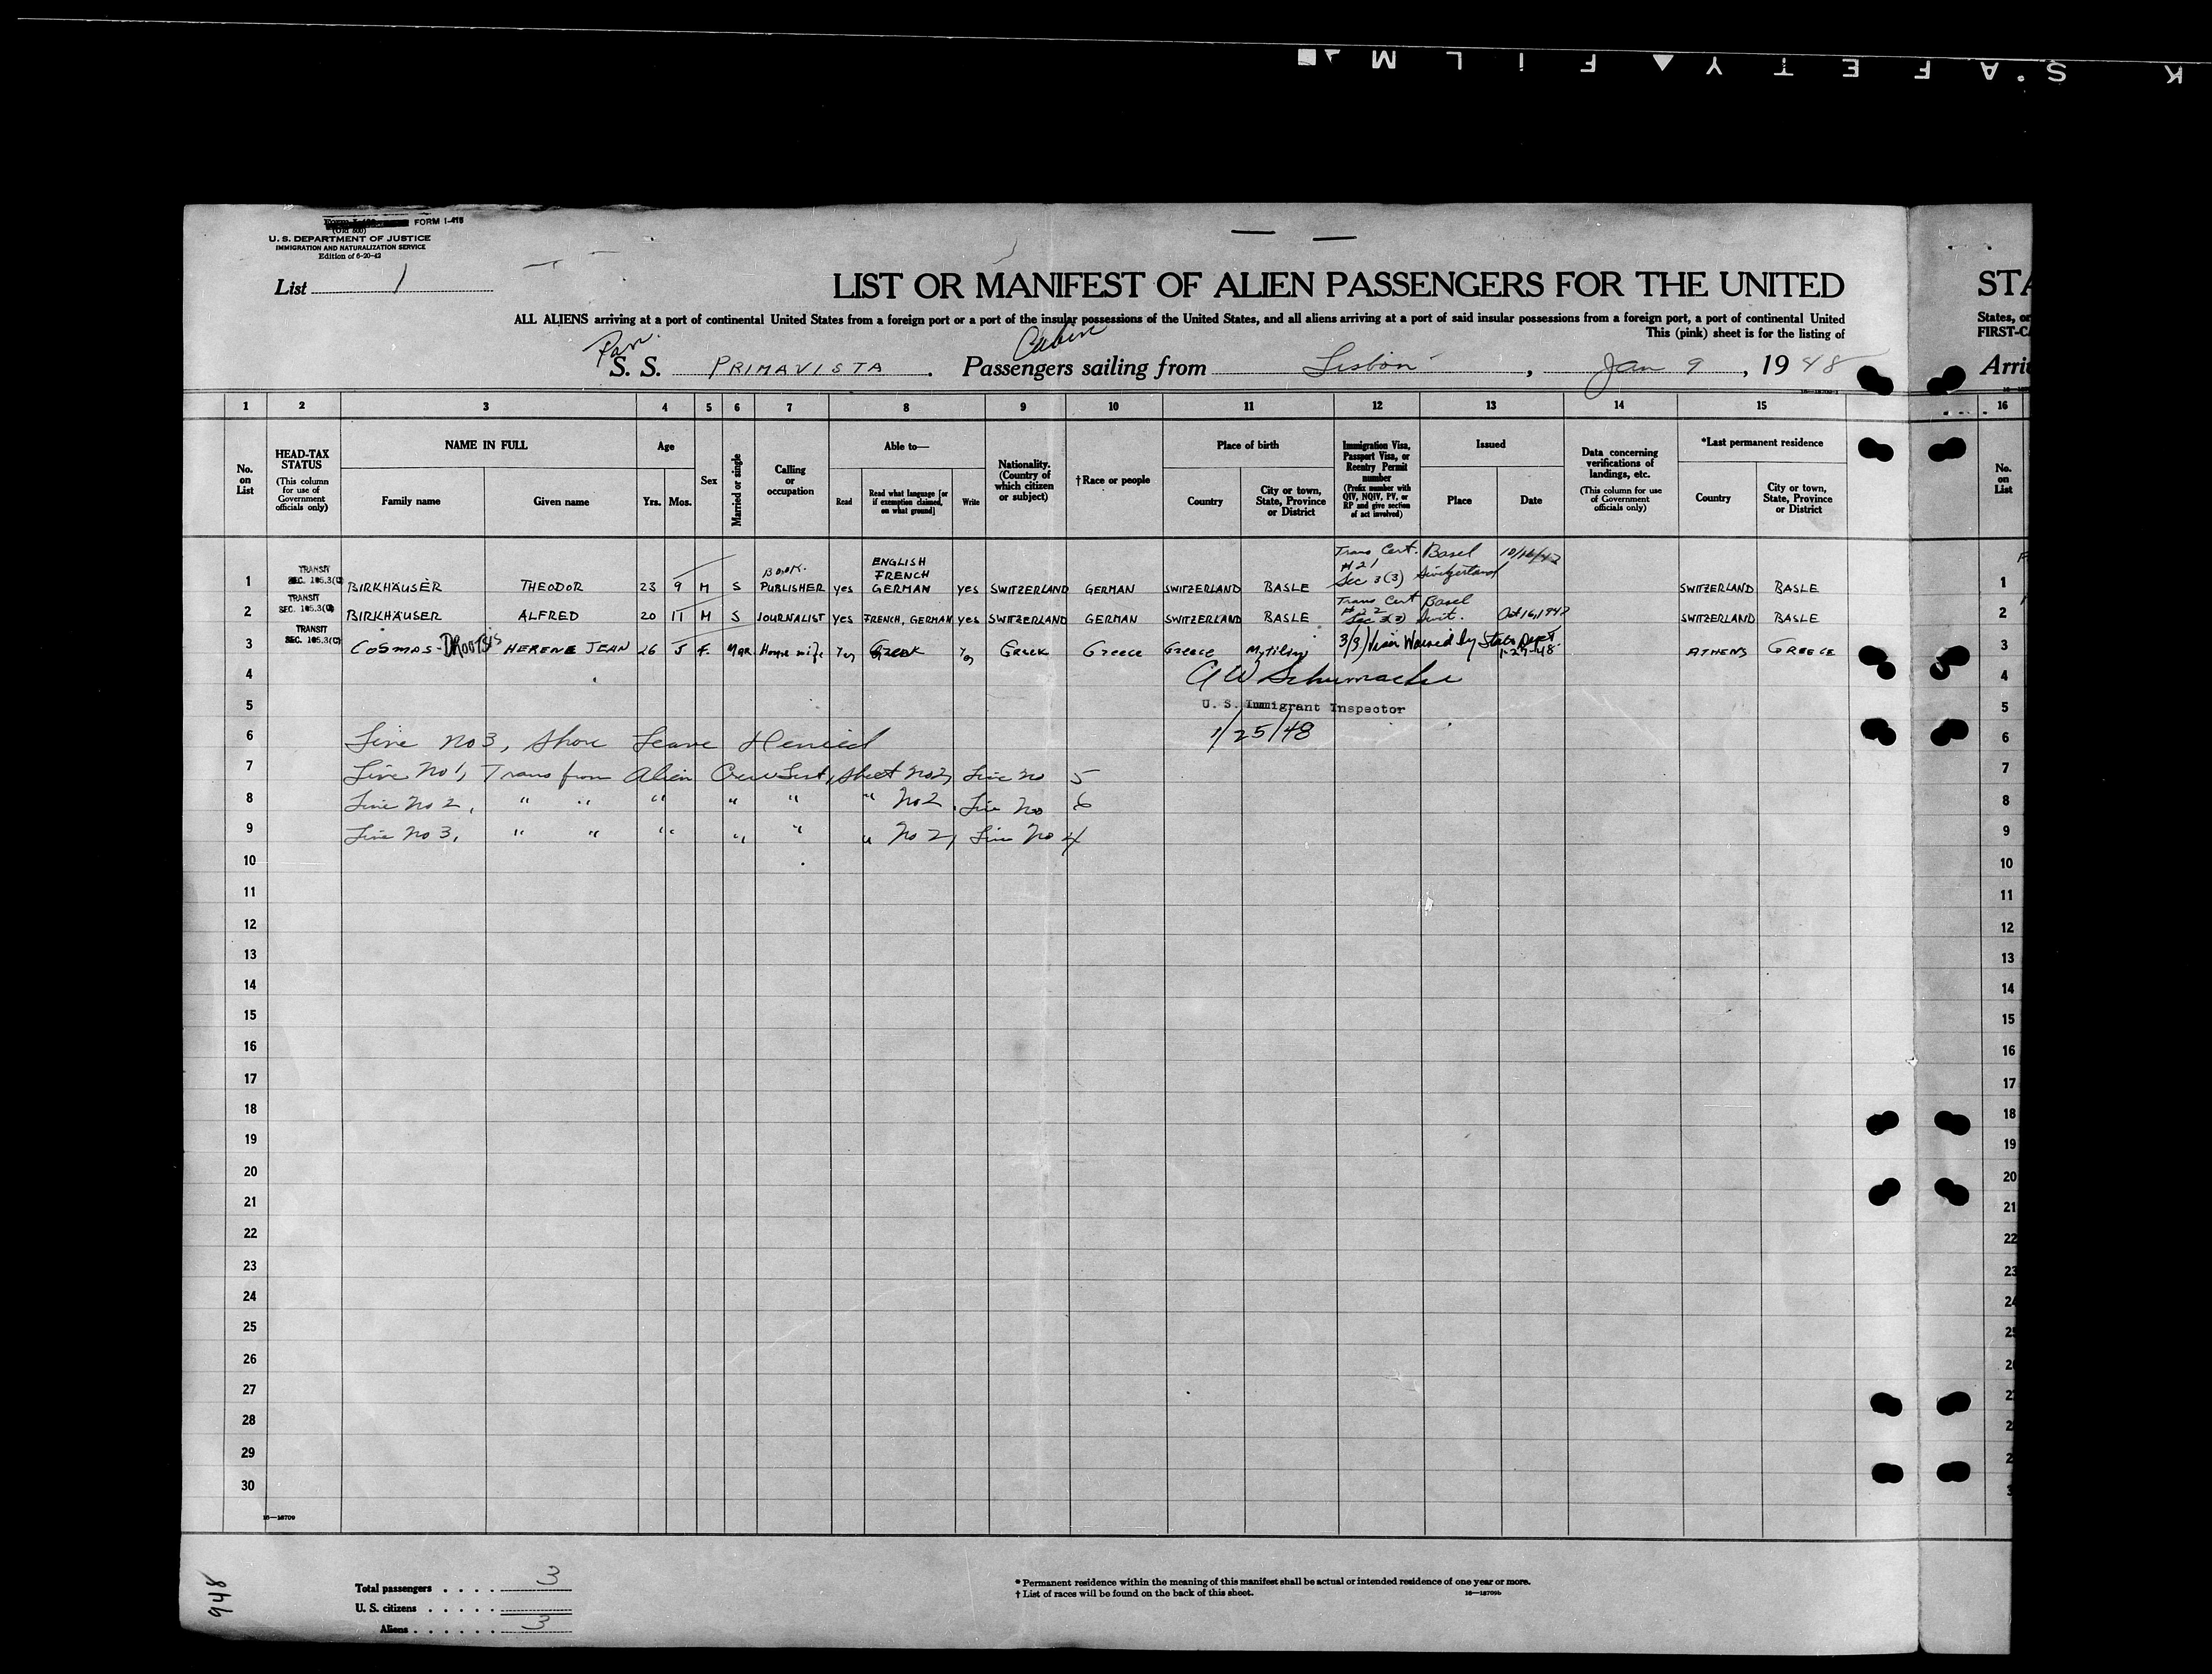 K S'AFETY▲FiLM
FORM I-416
(Old 500)
U. S. DEPARTMENT OF JUSTICE
IMMIGRATION AND NATURALIZATION SERVICE
Edition of 6-20-42
List 1
LIST OR MANIFEST OF ALIEN PASSENGERS FOR THE UNITED
STA
ALL ALIENS arriving at a port of continental United States from a foreign port or a port of the insular possessions of the United States, and all aliens arriving at a port of said insular possessions from a foreign port, a port of continental United
States, or
This (pink) sheet is for the listing of
FIRST-C
Cabin
S. S. PRIMAVISTA . Passengers sailing from Lisbon , Jan 9 , 19 48
Arri
1 2 3 4 5 6 7 8 9 10 11 12 13 14 15 16
No. on List
HEAD-TAX STATUS
(This column for use of Government officials only)
NAME IN FULL
Family name Given name
Age
Yrs. Mos.
Sex
Married or single
Calling or occupation
Able to—
Read
Read what language [or if exemption claimed, on what ground]
Write
Nationality. (Country of which citizen or subject)
†Race or people
Place of birth
Country
City or town, State, Province or District
Immigration Visa, Passport Visa, or Reentry Permit number
(Prefix number with QIV, NQIV, PV, or RP and give section of act involved)
Issued
Place Date
Data concerning verifications of landings, etc.
(This column for use of Government officials only)
*Last permanent residence
Country
City or town, State, Province or District
No. on List
1 TRANSIT SEC. 105.3(C) BIRKHÄUSER THEODOR 23 9 M S BOOK. PUBLISHER yes ENGLISH FRENCH GERMAN yes SWITZERLAND GERMAN SWITZERLAND BASLE Trans Cert. #21 Sec 3(3) Basel Switzerland 10/16/47 SWITZERLAND BASLE 1
2 TRANSIT SEC. 105.3(C) BIRKHÄUSER ALFRED 20 11 M S JOURNALIST yes FRENCH, GERMAN yes SWITZERLAND GERMAN SWITZERLAND BASLE Trans Cert #22 Sec 3(3) Basel Swit. Oct 16, 1947 SWITZERLAND BASLE 2
3 TRANSIT SEC. 105.3(C) COSMAS- HERENE JEAN 26 5 F. MAR. House wife Yes Greek Yes Greek Greece Greece Mytiliny 3(3) Visa Waived by State Dept. 1-27-48 ATHENS GREECE 3
4 A W Schumacher 4
5 U. S. Immigrant Inspector 5
6 Line No 3, Shore Leave Denied 1/25/48 6
7 Line No 1, Trans from Alien Crew List, Sheet No 2, Line No 5 7
8 Line No 2, " " " " " " No 2, Line No 6 8
9 Line No 3, " " " " " " No 2, Line No 4 9
10 10
11 11
12 12
13 13
14 14
15 15
16 16
17 17
18 18
19 19
20 20
21 21
22 22
23 23
24 24
25 25
26
27
28
29
30
16—18709
948
Total passengers . . . . 3
U. S. citizens . . . . .
Aliens . . . . . . 3
* Permanent residence within the meaning of this manifest shall be actual or intended residence of one year or more.
† List of races will be found on the back of this sheet.